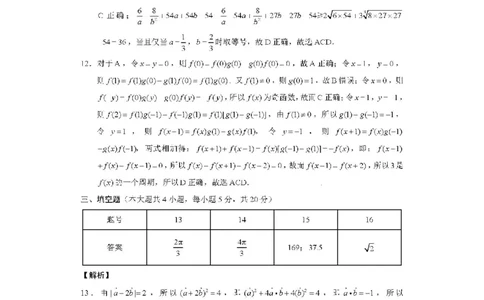 C 正确： 6/a 8/b² +54a+54b 54 6/a 54a+ 8/b² +27b 27b 54≥2√6×54+3∛8×27×27
54=36，当且仅当 a=1/3，b=2/3 时取等号，故 D 正确，故选 ACD.
12. 对于 A，令 x=y=0，则 f(0)=f(0)g(0) g(0)f(0)=0，故 A 正确；令 x=1，y=0，
则 f(1)=f(1)g(0)-g(1)f(0)=f(1)g(0)．又 f(1)≠0，则 g(0)=1，故 B 错误；令 x=0，则
f( y)=f(0)g(y) g(0)f(y)= f(y)，所以 f(x) 为奇函数，故而 C 正确；令 x=1，y= 1，
则 f(2)=f(1)g(-1)-f(-1)g(1)=f(1)[g(1)+g(-1)]，由 f(1)≠0，所以 g(1)+g(-1)=-1，
令 y=1 ，则 f(x-1)=f(x)g(1)-g(x)f(1)，令 y=-1 ，则 f(x+1)=f(x)g(-1)
-g(x)f(-1)，两式相加得：f(x+1)+f(x-1)=f(x)[g(-1)+g(1)]=-f(x)，即：f(x+1)
+f(x)+f(x-1)=0，所以 f(x)+f(x-1)+f(x-2)=0，故而 f(x-1)=f(x+2)，所以 3 是
f(x) 的一个周期，所以 D 正确，故选 ACD.
三、填空题（本大题共 4 小题，每小题 5 分，共 20 分）
题号 13 14 15 16
答案 2π/3 4π/3 169；37.5 √2
【解析】
13．由 |a-2b|=2 ，所以 (a+2b)²=4 ，(a)²+4a•b+4(b)²=4 ，a•b=-1 ，所以